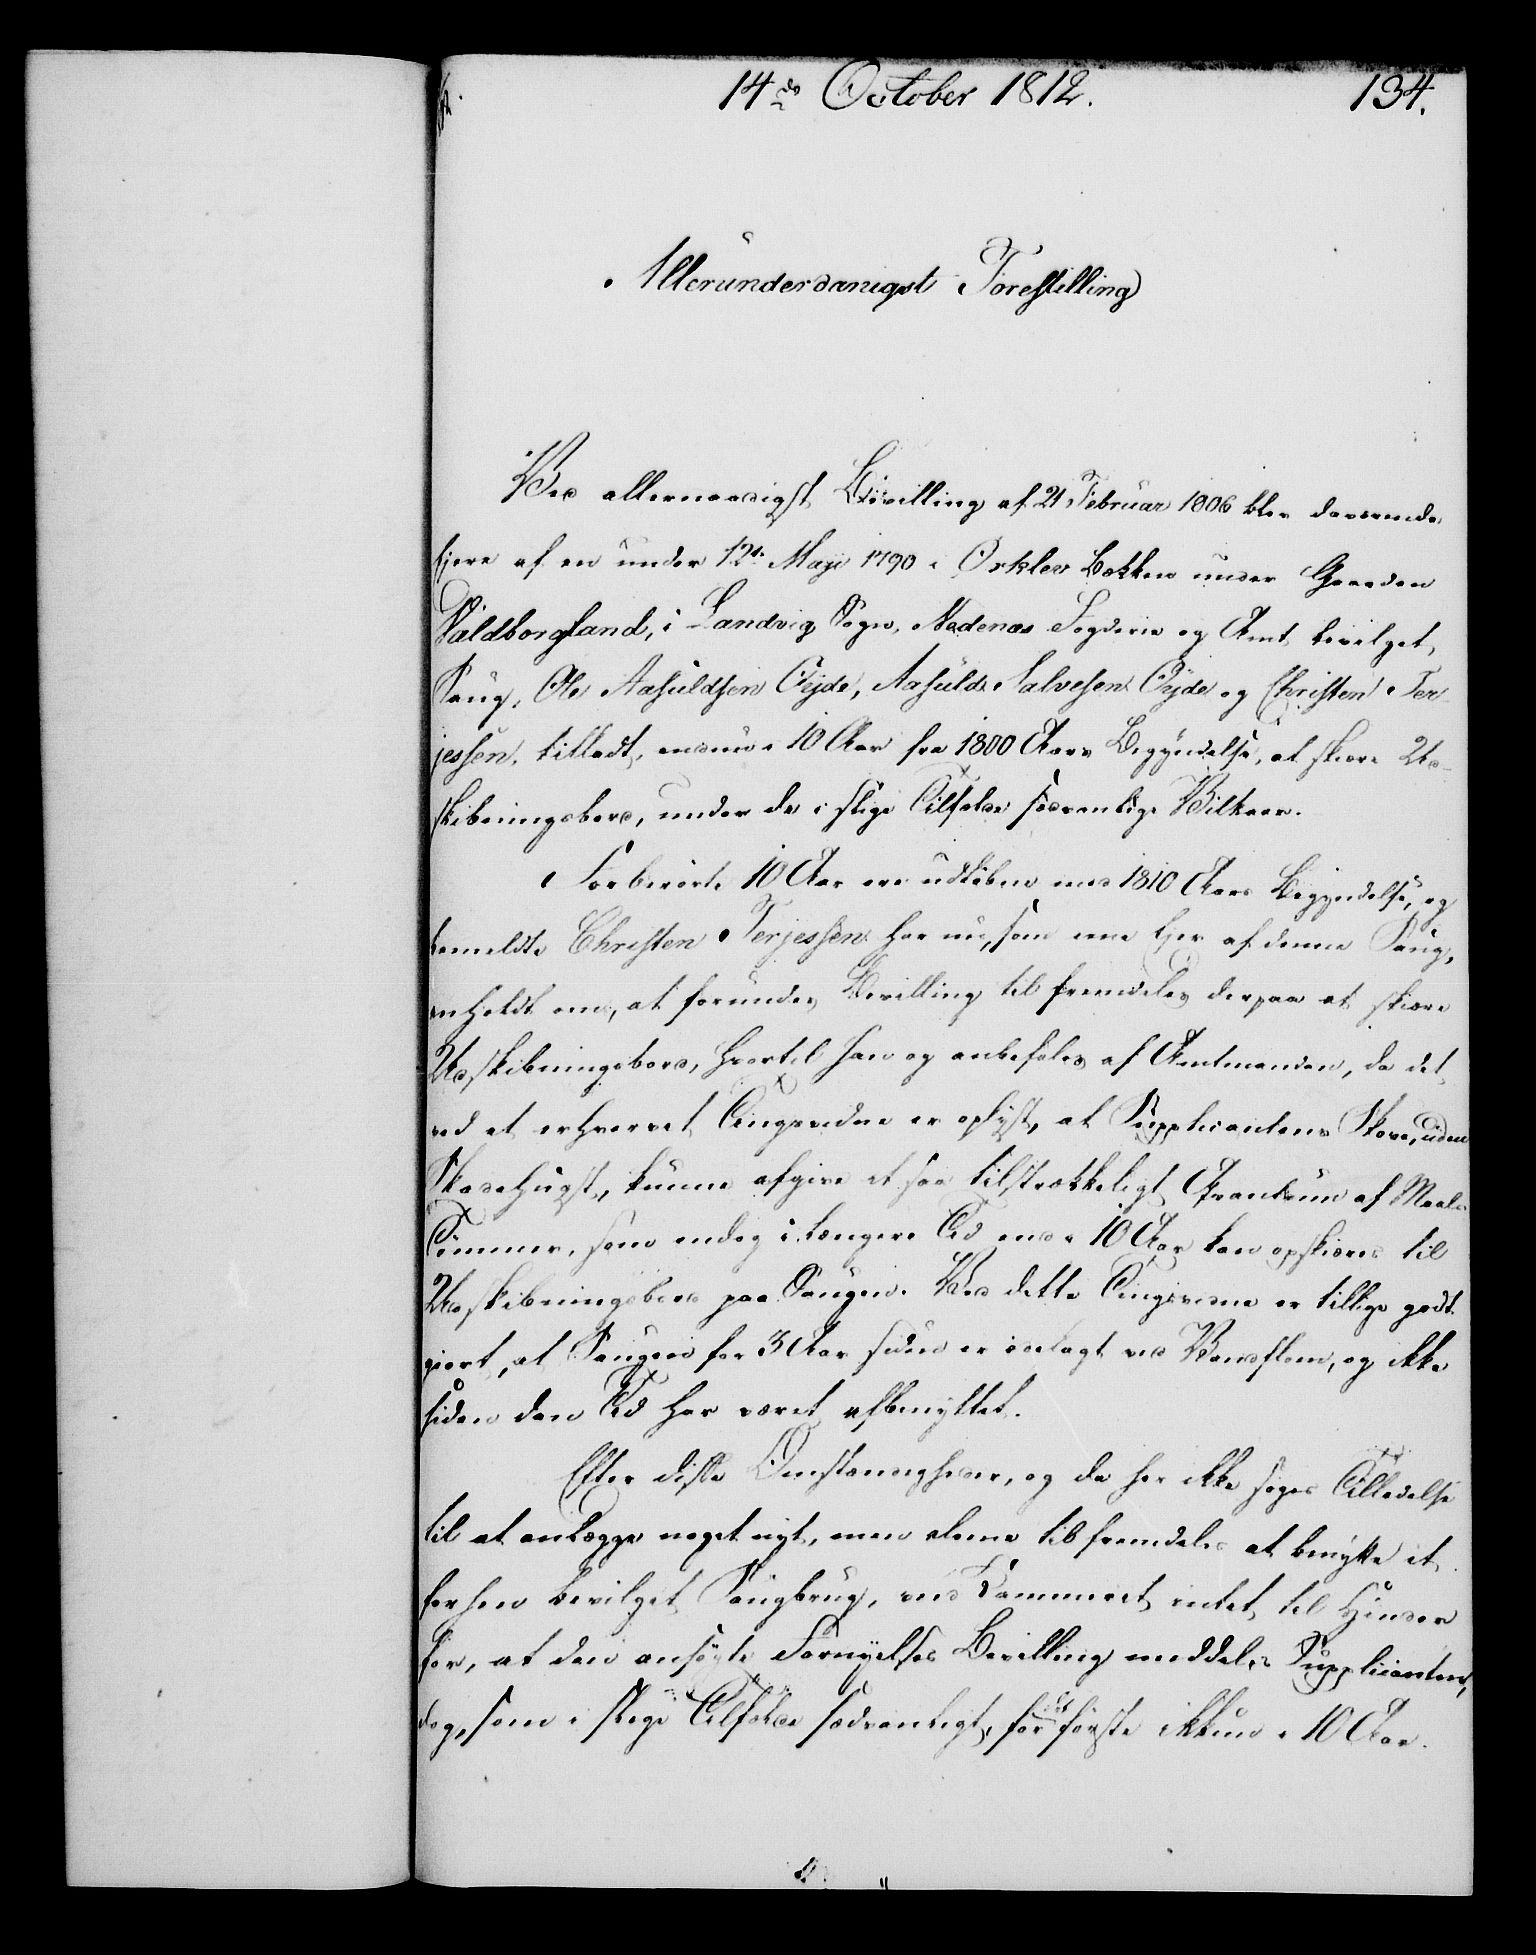 14de October 1812.
134.
Allerunderdanigst Forestilling
Ved allernaadigst Bevilling af 21 Februar 1806 blev daværende
Ejere af en under 12te Maji 1790 i Ørklev Bækken under Gaarden
Valdborgland, i Landvig Sogn, Nedenæs Fogderie og Amt bevilget
Saug, Ole Aasuldsen Eyde, Aasuld Salvesen Eyde og Christen Ter-
jessen, tilladt, endnu i 10 Aar fra 1800 Aars Begyndelse, at skiære Ud-
skibningsbord, under de i slige Tilfælde sædvanlige Vilkaar.
Forberørte 10 Aar ere udløbne med 1810 Aars Begyndelse, og
bemeldte Christen Terjessen har nu, som ene Ejer af denne Saug,
anholdt om, at forundes Bevilling til fremdeles derpaa at skiære
Udskibningsbord, hvortil han og anbefales af Amtmanden, da det
ved et erhvervet Tingsvidne er oplyst, at Supplicantens Skove, uden
Skovehugst, kunne afgive et saa tilstrækkeligt Qvantum af Maale
Tømmer, som endog i længere Tid end i 10 Aar kan opskiæres til
Udskibningsbord paa Saugen. Ved dette Tingsvidne er tillige godt-
giort, at Saugen for 3 Aar siden er ødelagt ved Vandflom, og ikke
siden den Tid har været afbenyttet.
Efter disse Omstændigheder, og da her ikke søges Tilladelse
til at anlægge noget nyt, men alene til fremdeles at benytte et
forhen bevilget Saugbrug, ved Kammeret intet til Hinder
for, at den ansøgte Fornyelses Bevilling meddeles Supplicanten,
dog, som i slige Tilfælde sædvanligt, for det første ikkun i 10 Aar.